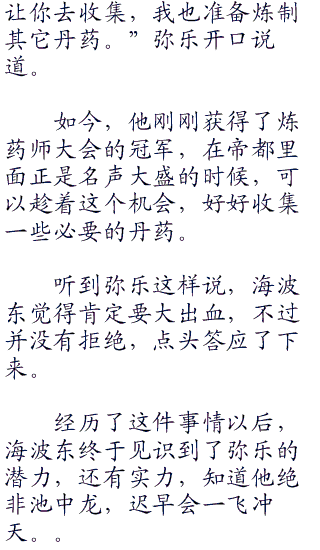 让你去收集，我也准备炼制
其它丹药。”弥乐开口说
道。
如今，他刚刚获得了炼
药师大会的冠军，在帝都里
面正是名声大盛的时候，可
以趁着这个机会，好好收集
一些必要的丹药。
听到弥乐这样说，海波
东觉得肯定要大出血，不过
并没有拒绝，点头答应了下
来。
经历了这件事情以后，
海波东终于见识到了弥乐的
潜力，还有实力，知道他绝
非池中龙，迟早会一飞冲
天。。